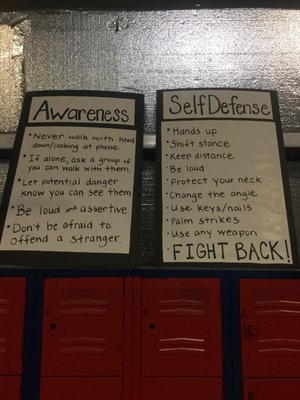 Awareness
• Never walk with head
down/looking at phone.
• If alone, ask a group if
you can walk with them.
• Let potential danger
know you can see them
• Be loud and assertive.
• Don't be afraid to
offend a stranger.
Self Defense
• Hands up
• Shift stance
• Keep distance
• Be loud
• Protect your neck
• Change the angle
• Use keys/nails
• Palm strikes
• Use any weapon
• FIGHT BACK!